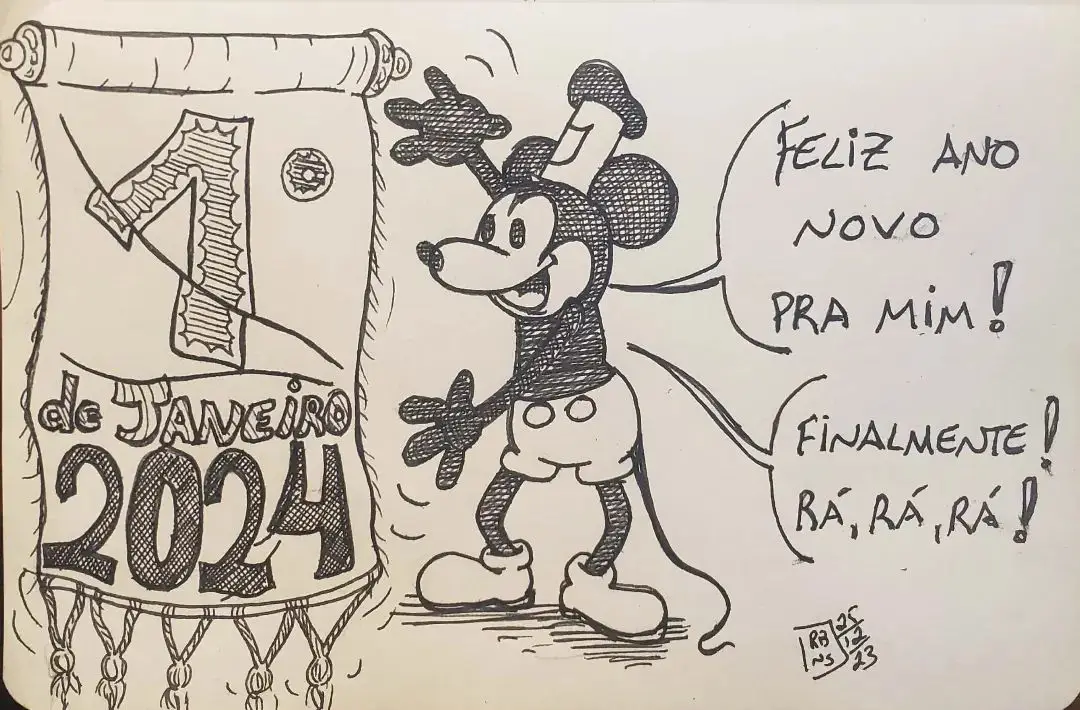 1º
de JANEIRO
2024
FELIZ ANO
NOVO
PRA MIM!
FINALMENTE!
RÁ, RÁ, RÁ!
25
12
23